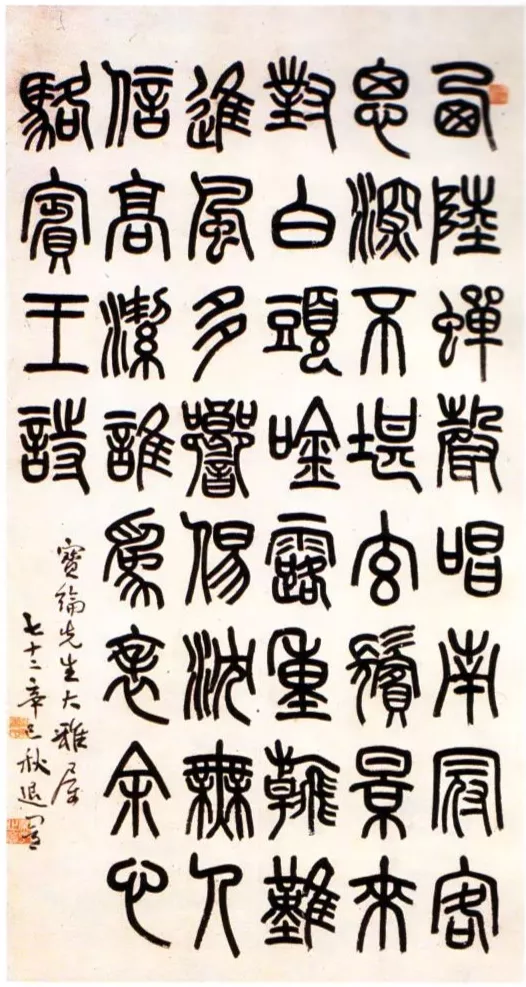 西陸蟬聲唱南冠客
思深不堪玄鬢景來
對白頭唫露重難
進風多響㑥沈無人
信高潔誰爲表余心
駱賓王詩
寶綸先生大雅屬
七十二辛巳秋退闇